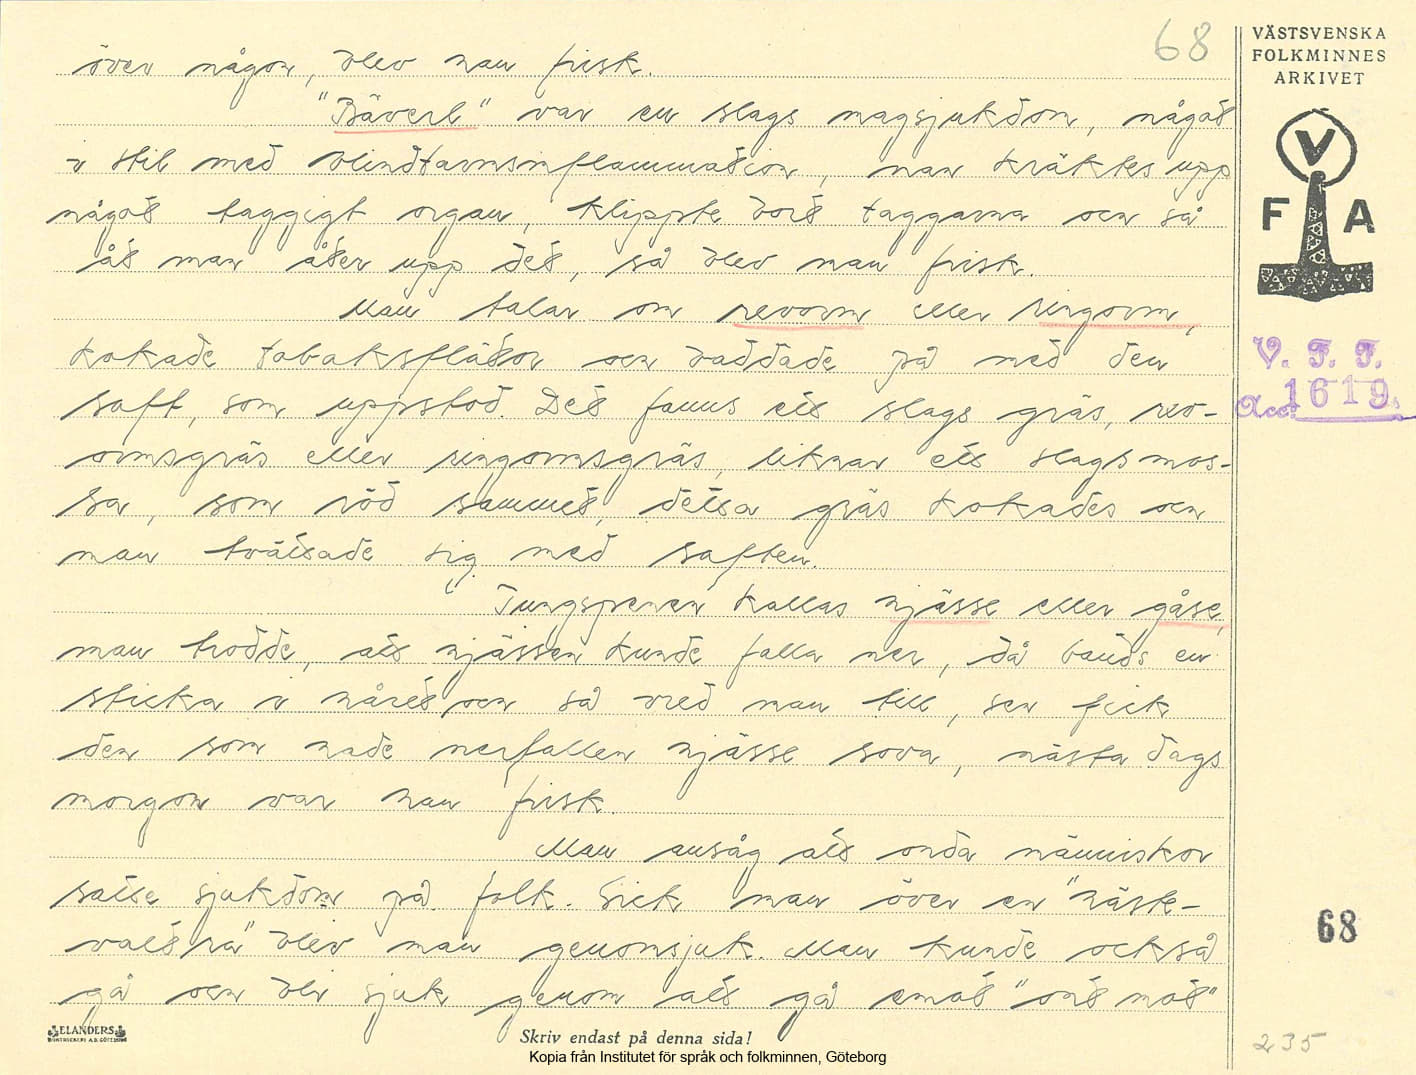 68
över någon, blev han frisk.
"Bäverl" var en slags magsjukdom, något
i stil med blindtarmsinflammation, man kräktes upp
något taggigt organ, klippte bort taggarna och så
åt man åter upp det, så blev man frisk.
Man talar om revorm eller ringorm,
kokade tobaksflätor och baddade på med den
saft, som uppstod. Det fanns ett slags gräs, rev-
ormsgräs eller ringormsgräs, liknar ett slags mos-
sa, som röd sammet, detta gräs kokades och
man tvättade sig med saften.
Tungspenen kallas njässe eller gåse,
man trodde, att njässen kunde falla ner, då bands en
sticka i håret och så vred man till, sen fick
den som hade nerfallen njässe sova, nästa dags
morgon var han frisk.
Man ansåg att onda människor
satte sjukdom på folk. Gick man över en "häste-
valtra" blev man genomsjuk. Man kunde också
gå och bli sjuk genom att gå emot "ont mot"
VÄSTSVENSKA
FOLKMINNES
ARKIVET
V
F A
V. F. F.
Acc: 1619.
68
235
ELANDERS
Skriv endast på denna sida!
Kopia från Institutet för språk och folkminnen, Göteborg